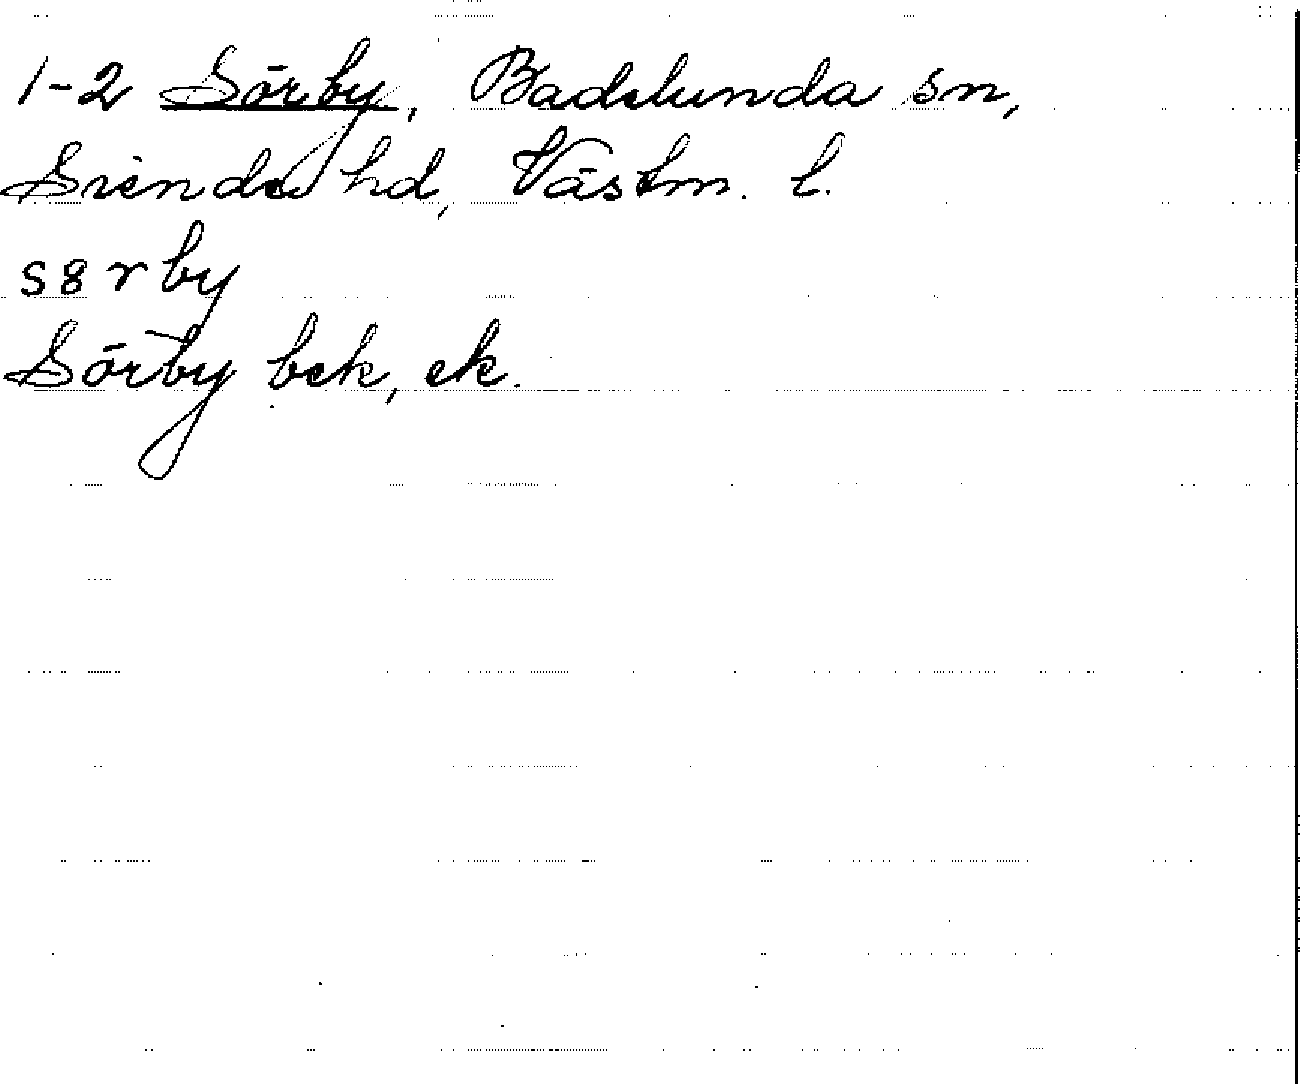 1-2 Sörby, Badelunda sn,
Siende hd, Västm. l.
s8rby
Sörby bek, ek.